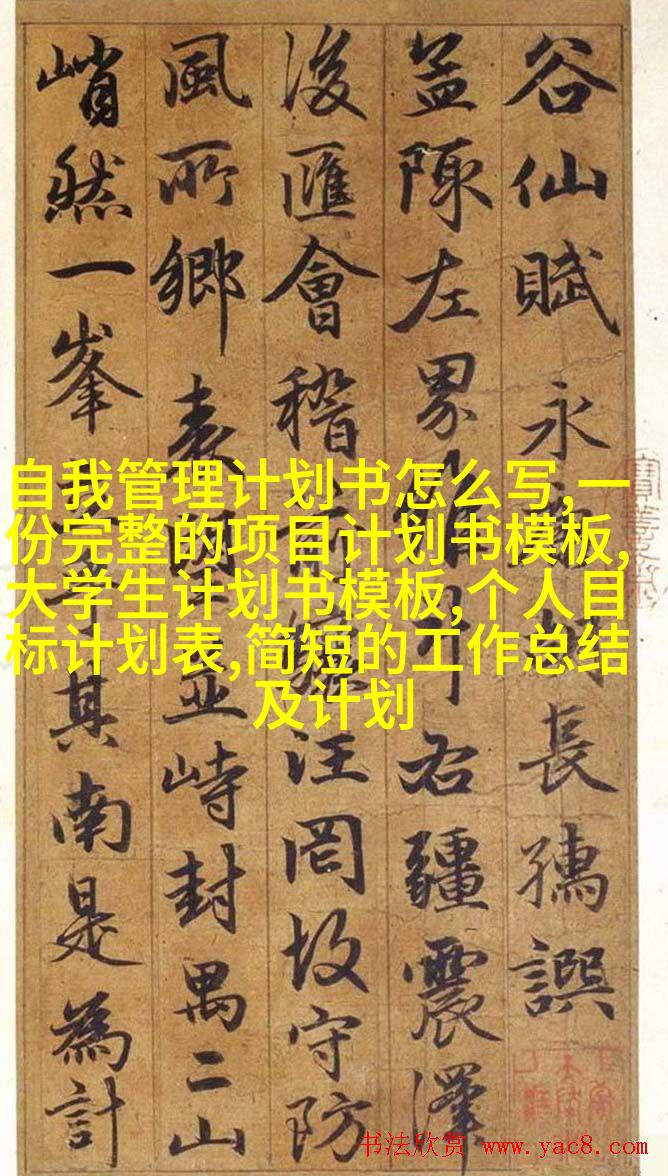 谷仙賦永長孺譔
盖陳左界右疆震澤
浚匯會稽汪罔故守防
風所鄉表峙封禺二山
峭然一峯其南是為計
自我管理计划书怎么写,一
份完整的项目计划书模板,
大学生计划书模板,个人目
标计划表,简短的工作总结
及计划
书法欣赏 www.yac8.com